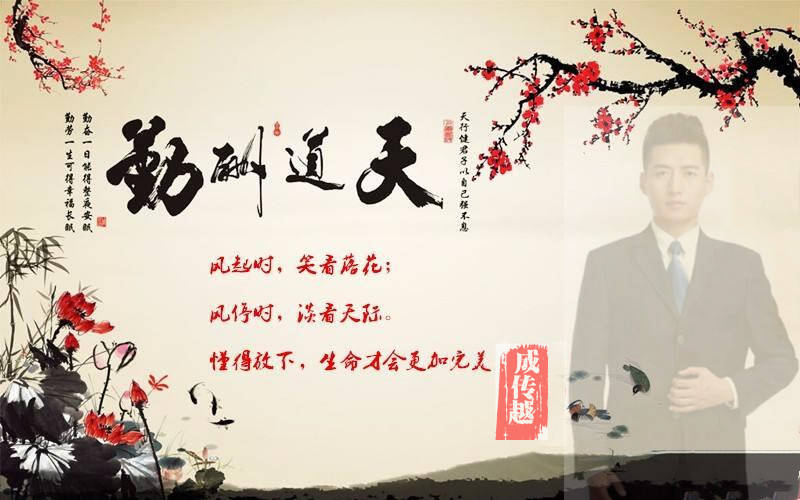 天行健君子以自己强不息
天道酬勤
勤奋一日能得整夜安眠
勤劳一生可得幸福长眠
风起时，笑看落花；
风停时，淡看天际。
懂得放下，生命才会更加完美
成传越